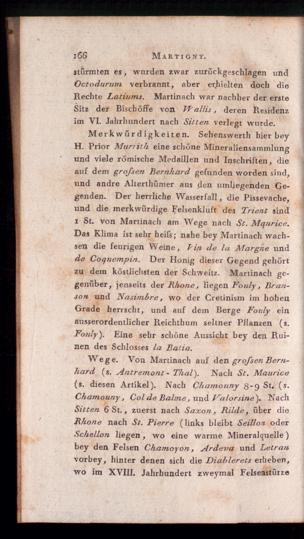 166 MARTIGNY.
stürmten es, wurden zwar zurückgeschlagen und
Octodurum verbrannt, aber erhielten doch die
Rechte Latiums. Martinach war nachher der erste
Sitz der Bischöffe von Wallis, deren Residenz
im VI. Jahrhundert nach Sitten verlegt wurde.
Merkwürdigkeiten. Sehenswerth hier bey
H. Prior Murrith eine schöne Mineraliensammlung
und viele römische Medaillen und Inschriften, die
auf dem grofsen Bernhard gefunden worden sind,
und andre Alterthümer aus den umliegenden Ge-
genden. Der herrliche Wasserfall, die Pissevache,
und die merkwürdige Felsenkluft des Trient sind
1 St. von Martinach am Wege nach St. Maurice.
Das Klima ist sehr heifs; nahe bey Martinach wach-
sen die feurigen Weine, Vin de la Margne und
de Coquempin. Der Honig dieser Gegend gehört
zu dem köstlichsten der Schweitz. Martinach ge-
genüber, jenseits der Rhone, liegen Fouly, Bran-
son und Nasimbre, wo der Cretinism im hohen
Grade herrscht, und auf dem Berge Fouly ein
ausserordentlicher Reichthum seltner Pflanzen (s.
Fouly). Eine sehr schöne Aussicht bey den Rui-
nen des Schlosses la Batia.
Wege. Von Martinach auf den grofsen Bern-
hard (s. Antremont-Thal). Nach St. Maurice
(s. diesen Artikel). Nach Chamouny 8-9 St. (s.
Chamouny, Col de Balme, und Valorsine). Nach
Sitten 6 St., zuerst nach Saxon, Rilde, über die
Rhone nach St. Pierre (links bleibt Seillos oder
Schellon liegen, wo eine warme Mineralquelle)
bey den Felsen Chamoyon, Ardeva und Letran
vorbey, hinter denen sich die Diablerets erheben,
wo im XVIII. Jahrhundert zweymal Felsenstürze